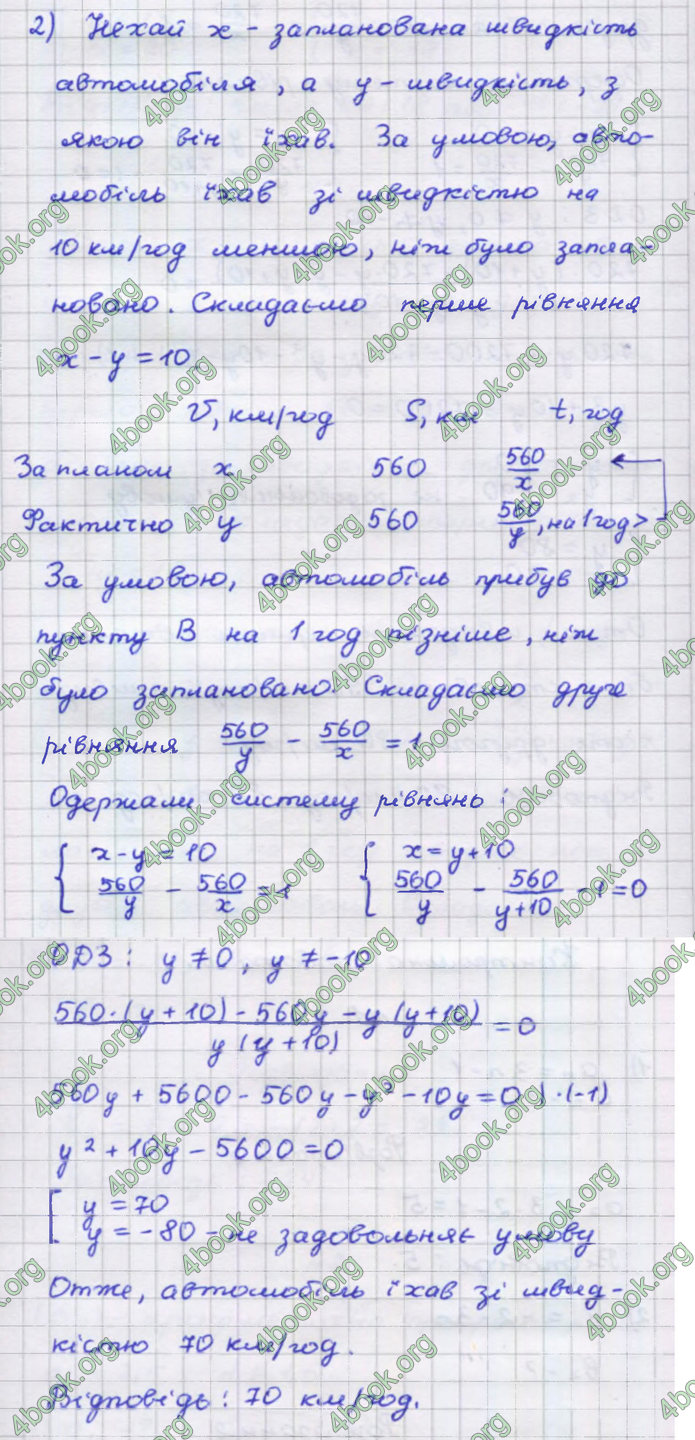 2) Нехай x - запланована швидкість
автомобіля, а y - швидкість, з
якою він їхав. За умовою, авто-
мобіль їхав зі швидкістю на
10 км/год меншою, ніж було запла-
новано. Складаємо перше рівняння
x - y = 10
V, км/год S, км t, год
За планом x 560 560/x
Фактично y 560 560/y, на 1 год >
За умовою, автомобіль прибув до
пункту В на 1 год пізніше, ніж
було заплановано. Складаємо друге
рівняння 560/y - 560/x = 1
Одержали систему рівнянь:
{ x - y = 10 { x = y + 10
560/y - 560/x = 1 560/y - 560/(y+10) - 1 = 0
ОДЗ: y ≠ 0, y ≠ -10
560·(y+10) - 560y - y(y+10) / y(y+10) = 0
560y + 5600 - 560y - y² - 10y = 0 | ·(-1)
y² + 10y - 5600 = 0
[ y = 70
y = -80 - не задовольняє умову
Отже, автомобіль їхав зі швид-
кістю 70 км/год.
Відповідь: 70 км/год.
4book.org